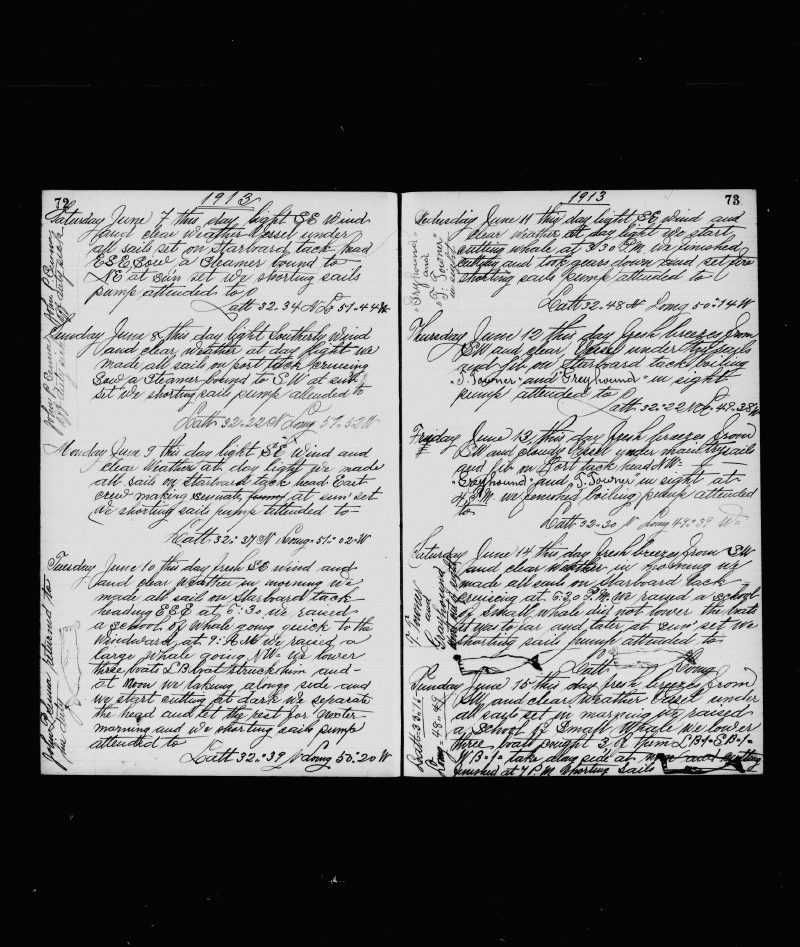 72
1913
Saturday June 7 this day light SE Wind
and clear Weather Vessel under
all sails set on Starboard tack head
ESE Saw a Steamer bound to
NE at Sun set we shorting sails
pump attended to
Latt 32-34 N Lo 51-44 W
Sunday June 8 this day light Southerly Wind
and clear Weather at day light we
made all sails on port tack cruising
Saw a Steamer bound to SW at sun
set we shorting sails pump attended to
Latt 32-22 N Long 51-52 W
Monday June 9 this day light SE Wind and
clear Weather at day light we made
all sails on Starboard tack head East
crew making at sun set
we shorting sails pump attended to
Latt 32-37 N Long 51-02 W
Tuesday June 10 this day fresh SE wind and
and clear Weather in morning we
made all sail on Starboard tack
heading ESE at 6-30 we raised
a School of Whale going quick to the
Windward at 9 A.M we raised a
large Whale going NW we lower
three boats L B boat struck him and
at Noon we taking along side and
we start cuting at dark we separate
the head and let the rest for
morning and we shorting sails pump
attended to
Latt 32-39 N Long 50-20 W
John P. returned to
73
1913
Wednesday June 11 this day light SE Wind and
clear Weather at day light we start
cutting whale at 3.30 P.M. we finished
cutting and took gears down and set fire
shorting sails pump attended to
Latt 32-48 N Long 50-14 W
"Greyhound"
and
"T. Towner"
in sight
Thursday June 12 this day fresh breezes from
SW and clear Vessel under topsails
and jib on Starboard tack boiling
"T. Towner" and "Greyhound" in sight
pump attended to
Latt 32-22 N Lo 49-28 W
Friday June 13, this day fresh breezes from
SW and cloudy Vessel under main topsails
and jib on Port tack head NW-
"Greyhound" and "T. Towner" in sight at
4 P.M. we finished boiling pump attended
to
Latt 32-30 N Long 49-39 W
Saturday June 14 this day fresh breezes from SW
and clear Weather in morning we
made all sail on Starboard tack
cruising at 6:30 P.M. we raised a school
of Small whale did not lower the boats
it was to far and later at sun set we
shorting sails pump attended to
Latt Long
T Towner
and
Greyhound
Sunday June 15 this day fresh breezes from
and clear Weather Vessel under
all sails set in morning we raised
a School of Small Whale we lower
three boats caught 3 of them L B 1- S B 1-
W B 1- take along side at noon and cutting
finished at 7 P.M. Shorting Sails
Latt 33:11
Long = 48-49